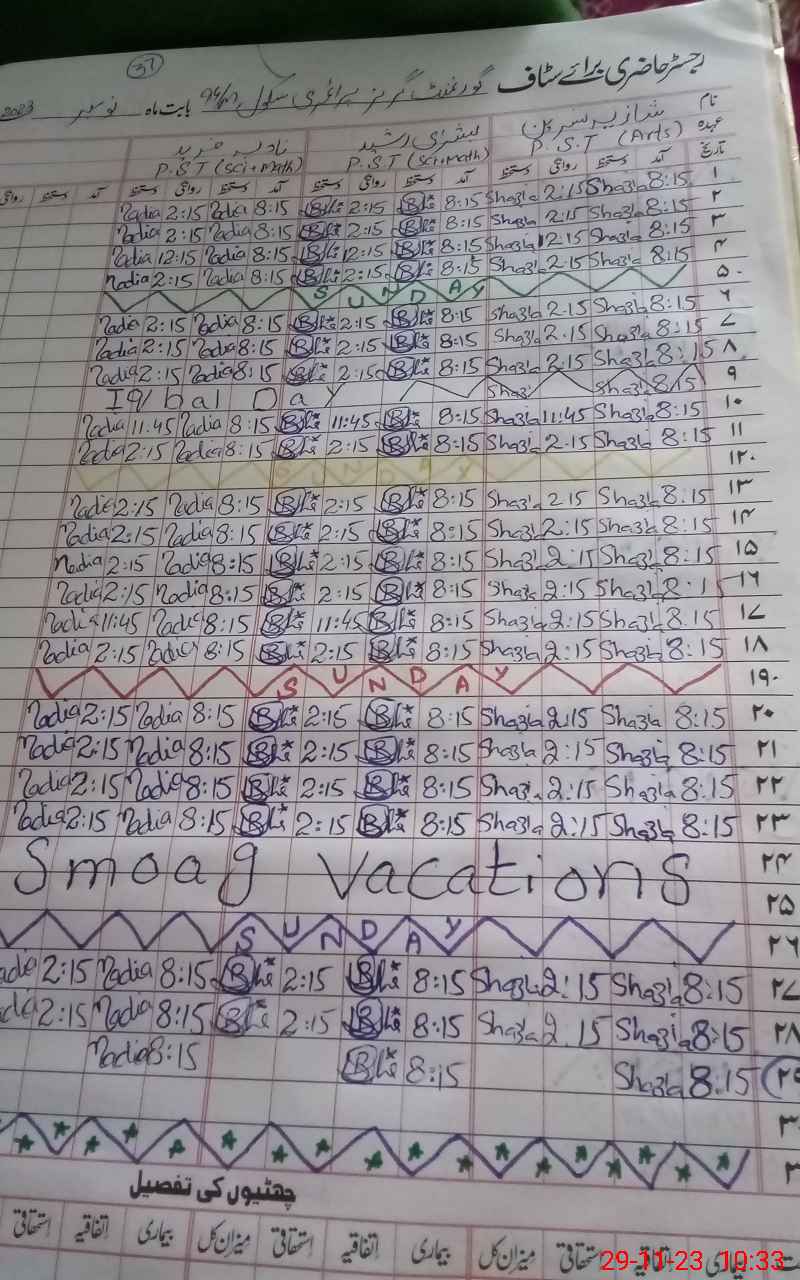 37
رجسٹر حاضری برائے سٹاف گورنمنٹ گرلز پرائمری سکول بابت ماہ نومبر 2023
نام شازیہ نسرین بشریٰ رشید نادیہ
عہدہ P.S.T (Arts) P.S.T (Sci+Math) P.S.T (Sci+Math)
تاریخ آمد دستخط روانگی دستخط آمد دستخط روانگی دستخط آمد دستخط روانگی دستخط آمد دستخط
Nadia 2:15 Nadia 8:15 2:15 8:15 Shazia 2:15 Shazia 8:15 ۱
Nadia 2:15 Nadia 8:15 2:15 8:15 Shazia 2:15 Shazia 8:15 ۲
Nadia 12:15 Nadia 8:15 12:15 8:15 Shazia 12:15 Shazia 8:15 ۳
Nadia 2:15 Nadia 8:15 2:15 8:15 Shazia 2:15 Shazia 8:15 ۴
SUNDAY ۵
Nadia 2:15 Nadia 8:15 2:15 8:15 Shazia 2:15 Shazia 8:15 ۶
Nadia 2:15 Nadia 8:15 2:15 8:15 Shazia 2:15 Shazia 8:15 ۷
Nadia 2:15 Nadia 8:15 2:15 8:15 Shazia 2:15 Shazia 8:15 ۸
Iqbal Day ۹
Nadia 11:45 Nadia 8:15 11:45 8:15 Shazia 11:45 Shazia 8:15 ۱۰
Nadia 2:15 Nadia 8:15 2:15 8:15 Shazia 2:15 Shazia 8:15 ۱۱
SUNDAY ۱۲
Nadia 2:15 Nadia 8:15 2:15 8:15 Shazia 2:15 Shazia 8:15 ۱۳
Nadia 2:15 Nadia 8:15 2:15 8:15 Shazia 2:15 Shazia 8:15 ۱۴
Nadia 2:15 Nadia 8:15 2:15 8:15 Shazia 2:15 Shazia 8:15 ۱۵
Nadia 2:15 Nadia 8:15 2:15 8:15 Shazia 2:15 Shazia 8:15 ۱۶
Nadia 11:45 Nadia 8:15 11:45 8:15 Shazia 2:15 Shazia 8:15 ۱۷
Nadia 2:15 Nadia 8:15 2:15 8:15 Shazia 2:15 Shazia 8:15 ۱۸
SUNDAY ۱۹
Nadia 2:15 Nadia 8:15 2:15 8:15 Shazia 2:15 Shazia 8:15 ۲۰
Nadia 2:15 Nadia 8:15 2:15 8:15 Shazia 2:15 Shazia 8:15 ۲۱
Nadia 2:15 Nadia 8:15 2:15 8:15 Shazia 2:15 Shazia 8:15 ۲۲
Nadia 2:15 Nadia 8:15 2:15 8:15 Shazia 2:15 Shazia 8:15 ۲۳
Smoag Vacations ۲۴
۲۵
SUNDAY ۲۶
adia 2:15 Nadia 8:15 2:15 8:15 Shazia 2:15 Shazia 8:15 ۲۷
adia 2:15 Nadia 8:15 2:15 8:15 Shazia 2:15 Shazia 8:15 ۲۸
Nadia 8:15 8:15 Shazia 8:15
چھٹیوں کی تفصیل
اتفاقیہ بیماری میزان کل استحقاقی اتفاقیہ بیماری میزان کل استحقاقی اتفاقیہ بیماری میزان کل استحقاقی
29-11-23 10:33